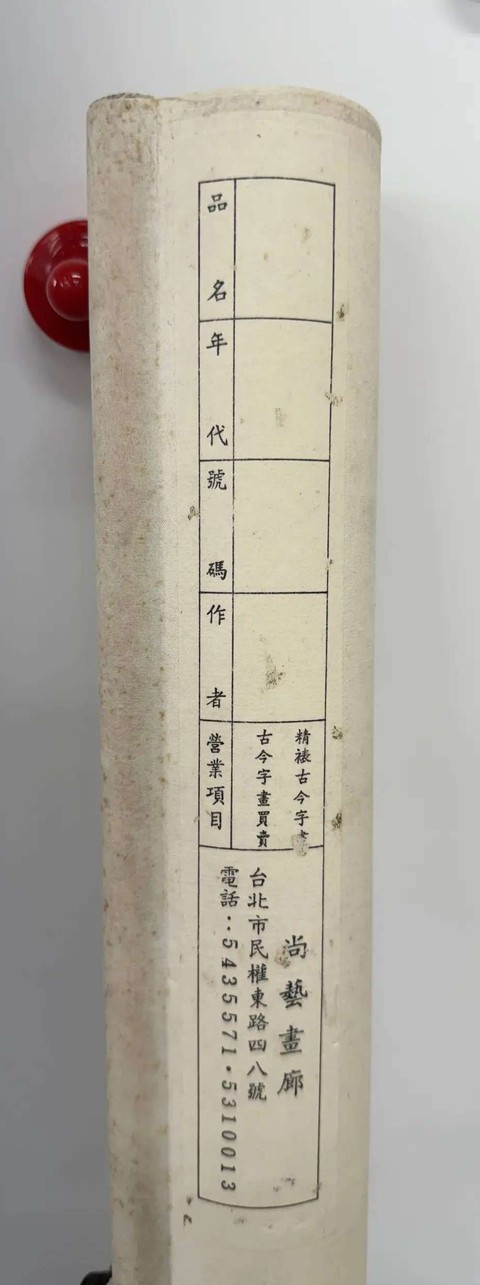 品名
年代
號碼
作者
營業項目
精裱古今字畫
古今字畫買賣
尚藝畫廊
台北市民權東路四八號
電話：5435571·5310013